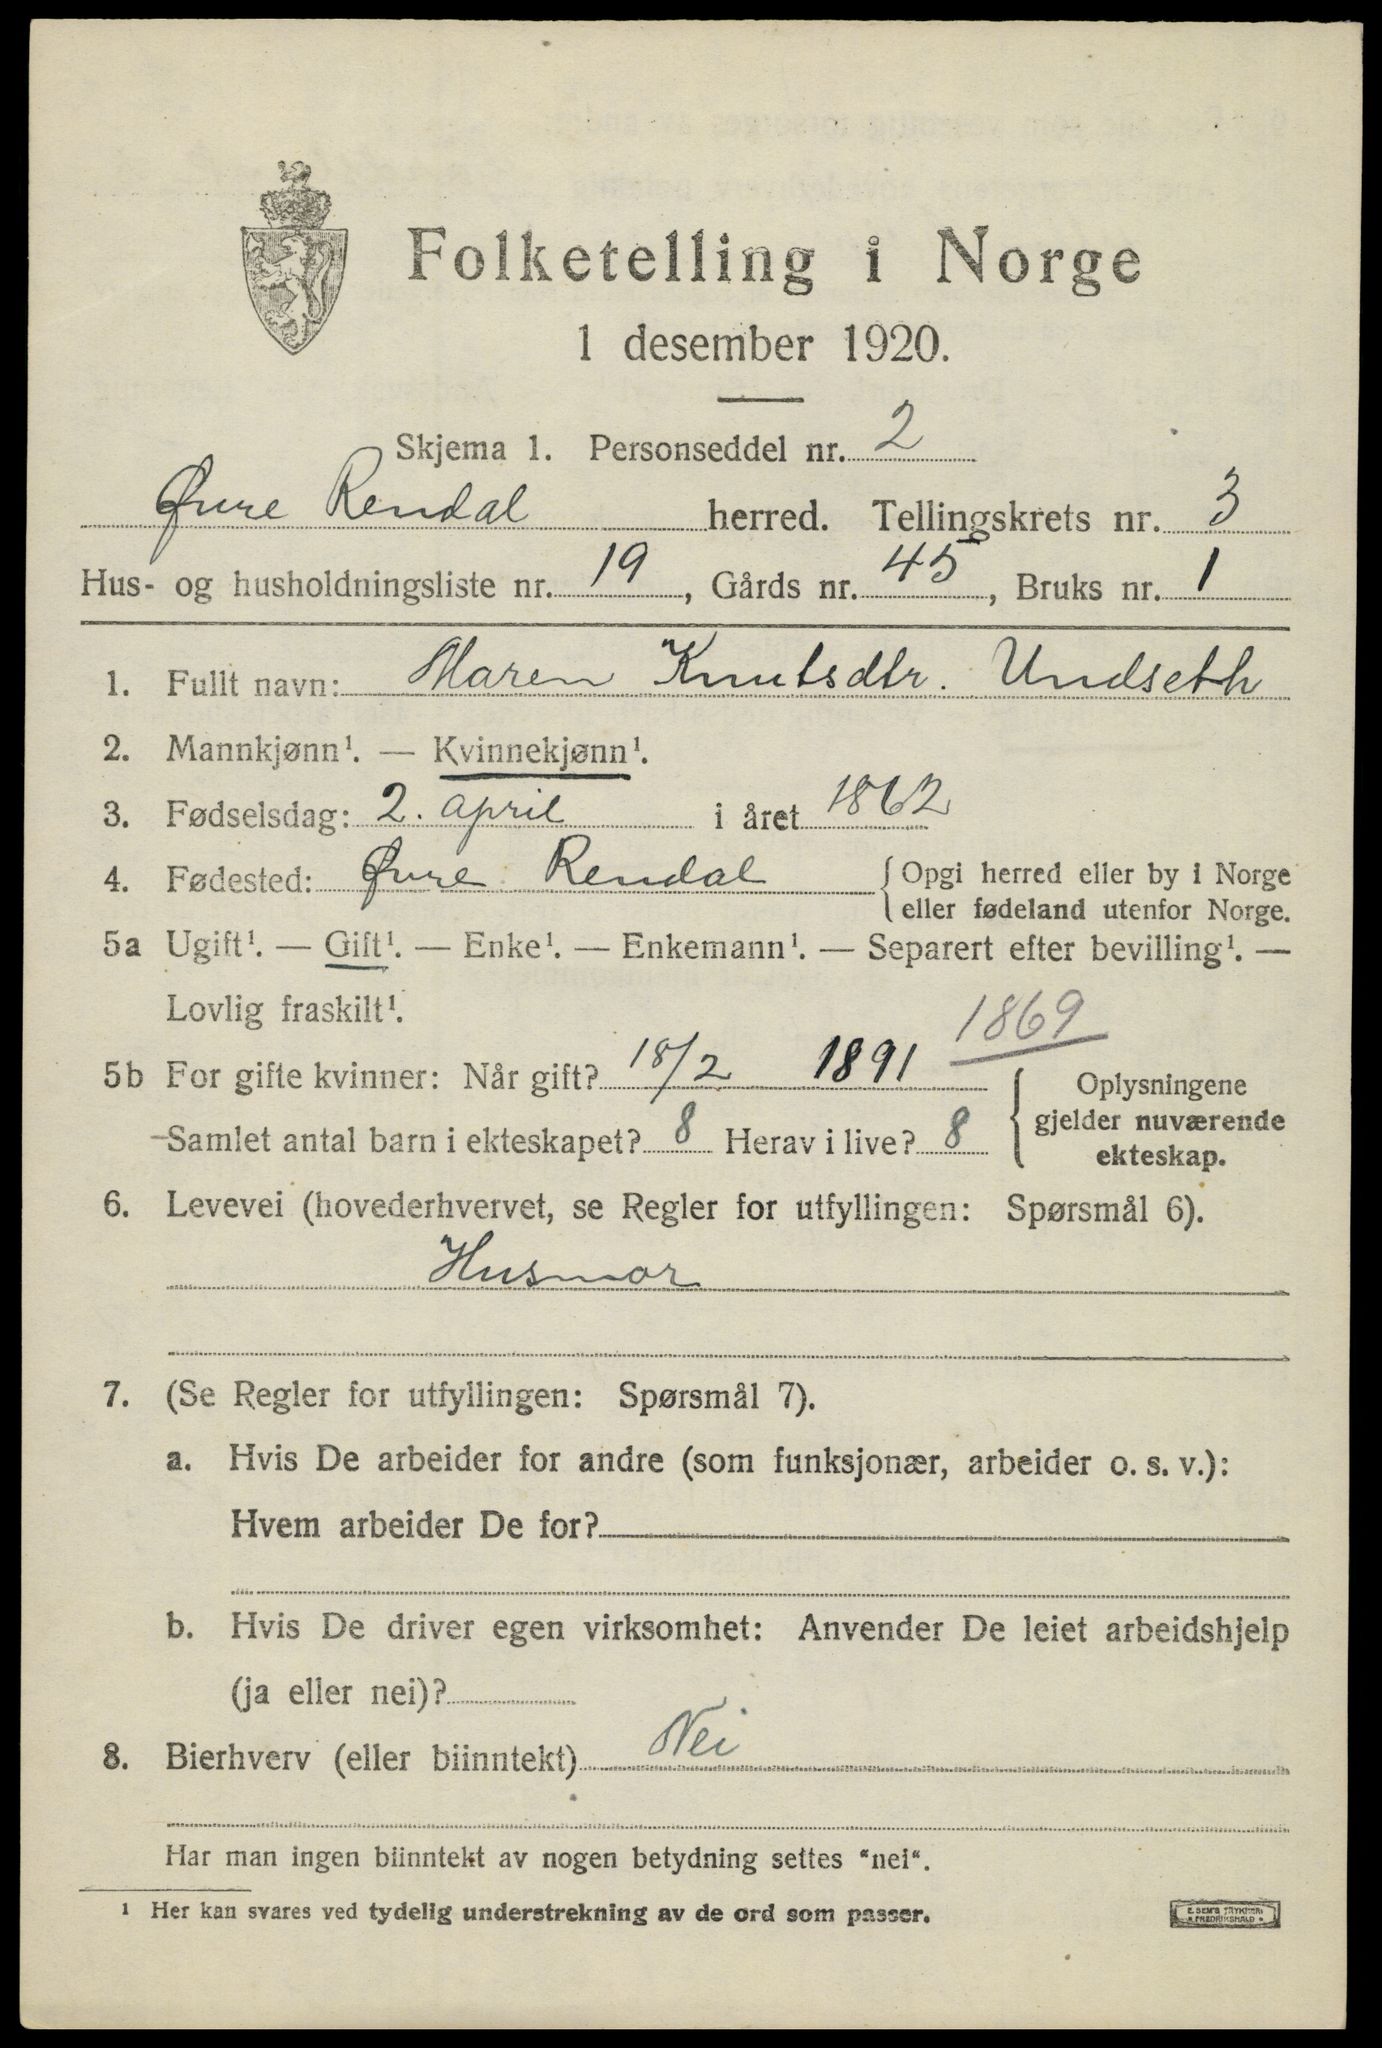 Folketelling i Norge
1 desember 1920.
Skjema 1. Personseddel nr. 2
Øvre Rendal herred. Tellingskrets nr. 3
Hus- og husholdningsliste nr. 19, Gårds nr. 45, Bruks nr. 1
1. Fullt navn: Maren Knutsdtr. Undseth
2. Mannkjønn¹. — Kvinnekjønn¹.
3. Fødselsdag: 2. april i året 1862
4. Fødested: Øvre Rendal { Opgi herred eller by i Norge
eller fødeland utenfor Norge.
5a Ugift¹. — Gift¹. — Enke¹. — Enkemann¹. — Separert efter bevilling¹. —
Lovlig fraskilt¹.
1869
5b For gifte kvinner: Når gift? 18/2 1891
Samlet antal barn i ekteskapet? 8 Herav i live? 8
{ Oplysningene
gjelder nuværende
ekteskap.
6. Levevei (hovederhvervet, se Regler for utfyllingen: Spørsmål 6).
Husmor
7. (Se Regler for utfyllingen: Spørsmål 7).
a. Hvis De arbeider for andre (som funksjonær, arbeider o. s. v.):
Hvem arbeider De for?
b. Hvis De driver egen virksomhet: Anvender De leiet arbeidshjelp
(ja eller nei)?
8. Bierhverv (eller biinntekt) Nei
Har man ingen biinntekt av nogen betydning settes "nei".
¹ Her kan svares ved tydelig understrekning av de ord som passer.
E. SEM'S TRYKKERI
FREDRIKSHALD